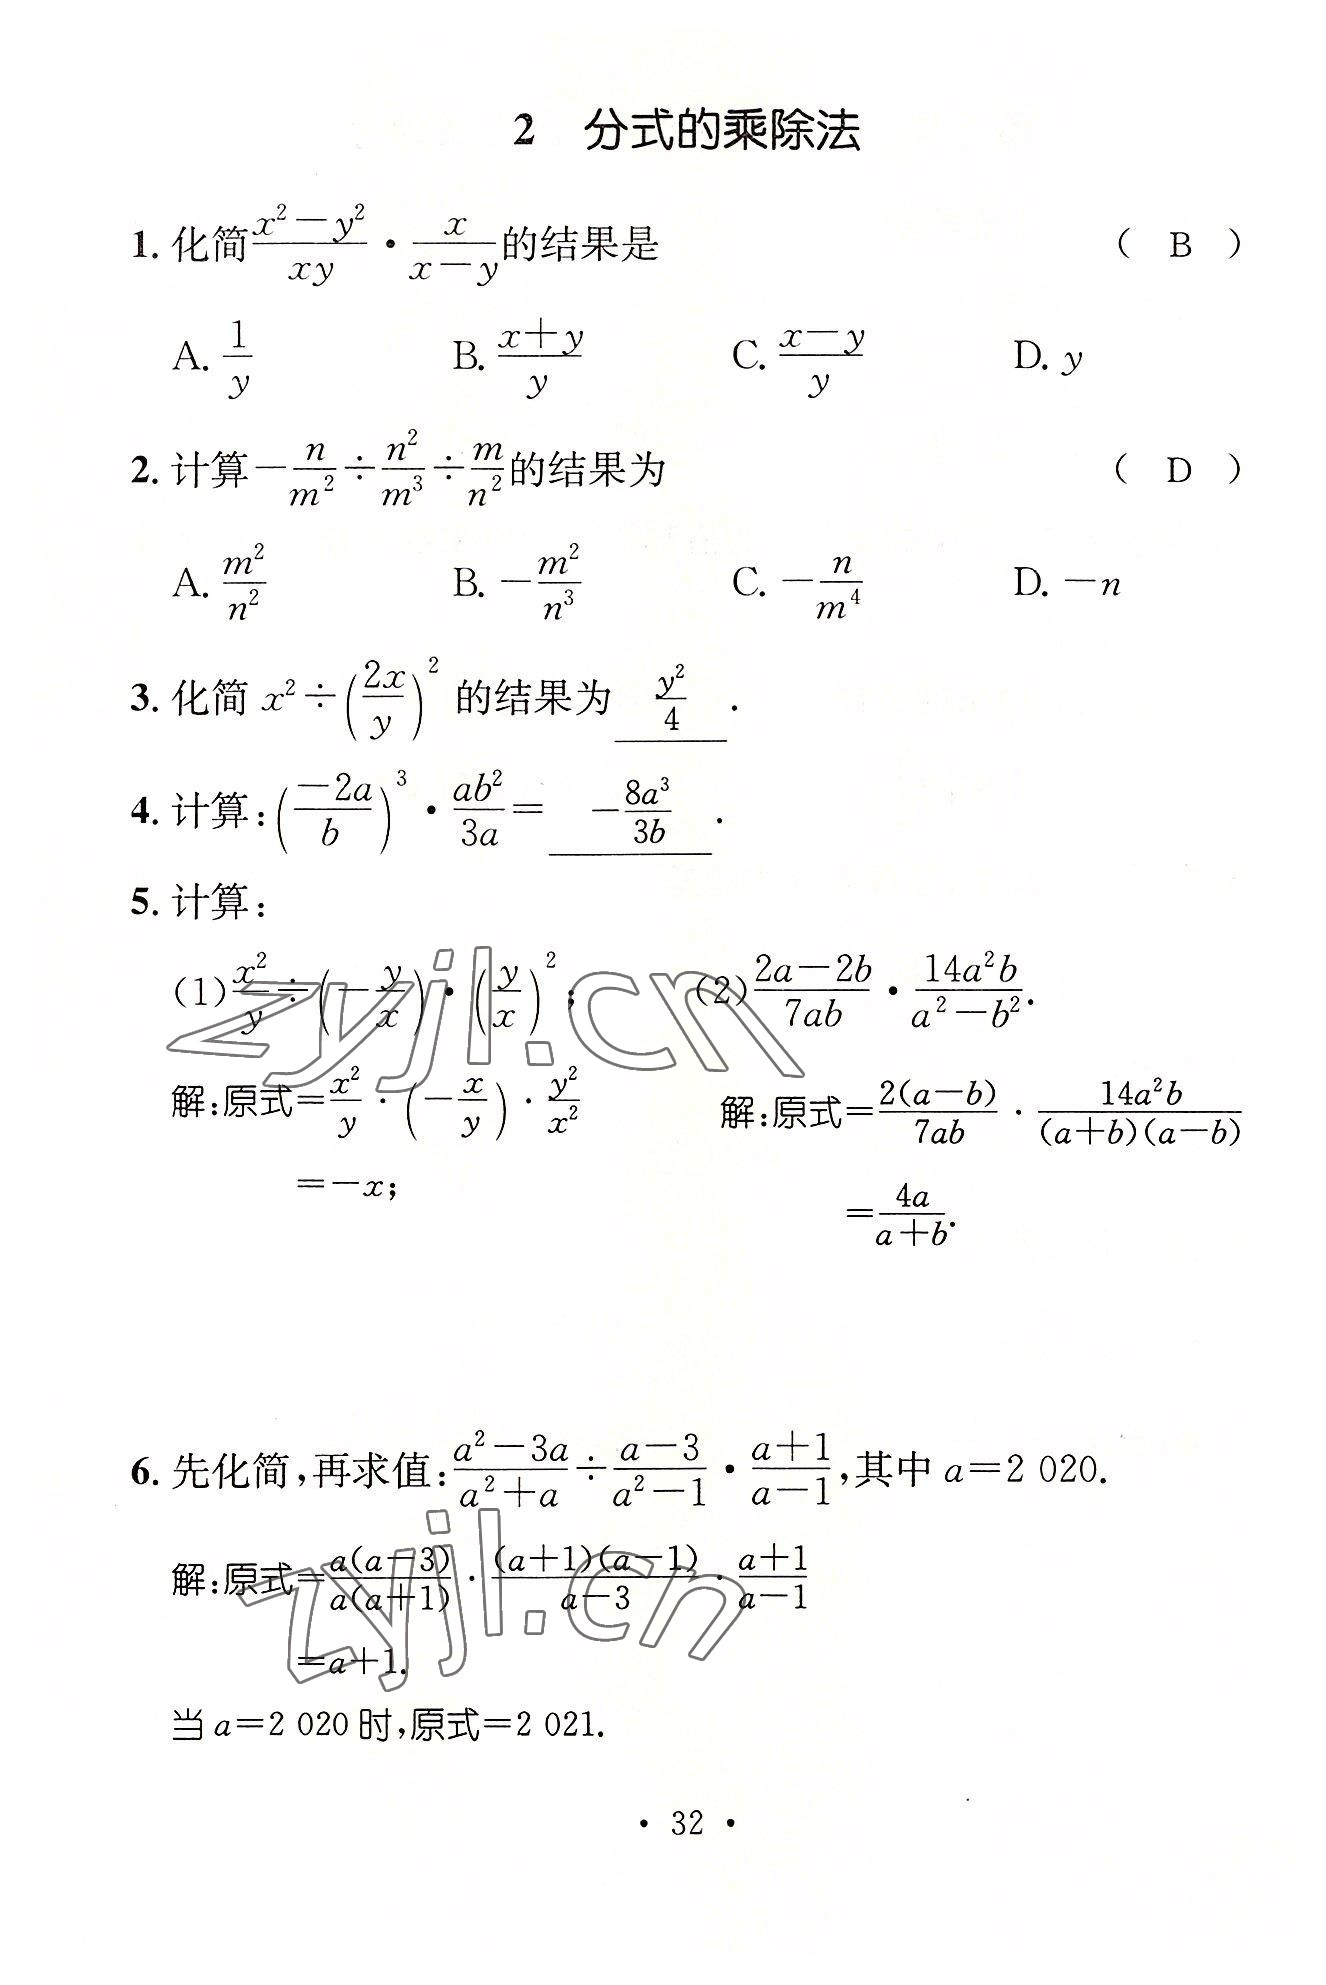 2 分式的乘除法
1. 化简 $\frac{x^2-y^2}{xy} \cdot \frac{x}{x-y}$ 的结果是 ( B )
A. $\frac{1}{y}$ B. $\frac{x+y}{y}$ C. $\frac{x-y}{y}$ D. $y$
2. 计算 $-\frac{n}{m^2} \div \frac{n^2}{m^3} \div \frac{m}{n^2}$ 的结果为 ( D )
A. $\frac{m^2}{n^2}$ B. $-\frac{m^2}{n^3}$ C. $-\frac{n}{m^4}$ D. $-n$
3. 化简 $x^2 \div \left(\frac{2x}{y}\right)^2$ 的结果为 $\frac{y^2}{4}$ .
4. 计算: $\left(\frac{-2a}{b}\right)^3 \cdot \frac{ab^2}{3a} =$ $-\frac{8a^3}{3b}$ .
5. 计算:
(1) $\frac{x^2}{y} \div \left(-\frac{y}{x}\right) \cdot \left(\frac{y}{x}\right)^2$; (2) $\frac{2a-2b}{7ab} \cdot \frac{14a^2b}{a^2-b^2}$.
解:原式$=\frac{x^2}{y} \cdot \left(-\frac{x}{y}\right) \cdot \frac{y^2}{x^2}$ 解:原式$=\frac{2(a-b)}{7ab} \cdot \frac{14a^2b}{(a+b)(a-b)}$
$=-x$; $=\frac{4a}{a+b}$.
zyjl.cn
6. 先化简,再求值: $\frac{a^2-3a}{a^2+a} \div \frac{a-3}{a^2-1} \cdot \frac{a+1}{a-1}$,其中 $a=2\ 020$.
解:原式$=\frac{a(a-3)}{a(a+1)} \cdot \frac{(a+1)(a-1)}{a-3} \cdot \frac{a+1}{a-1}$
$=a+1$.
zyjl.cn
当 $a=2\ 020$ 时,原式$=2\ 021$.
· 32 ·